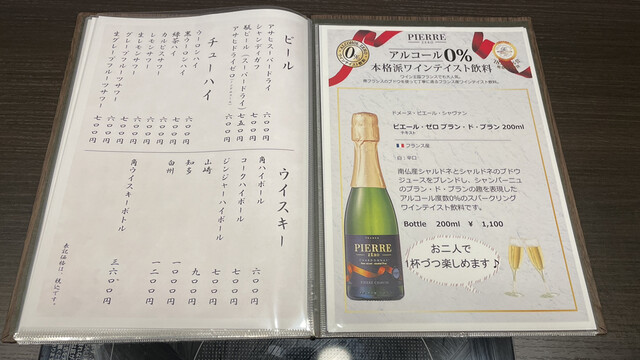 ビール
アサヒスーパードライ 六〇〇円
シャンディガフ 七〇〇円
瓶ビール(スーパードライ) 七五〇円
アサヒドライゼロ 六〇〇円
チューハイ
ウーロンハイ 六〇〇円
黒ウーロンハイ 六〇〇円
緑茶ハイ 六〇〇円
カルピスサワー 六〇〇円
レモンサワー 六〇〇円
生レモンサワー 七〇〇円
グレープフルーツサワー 六〇〇円
生グレープフルーツサワー 七〇〇円
ウイスキー
角ハイボール 六〇〇円
コークハイボール 七〇〇円
ジンジャーハイボール 七〇〇円
山崎
知多 九〇〇円
白州 一〇〇〇円
一二〇〇円
角ウイスキーボトル 三六〇〇円
表記価格は、税込です。
PIERRE
ZÉRO
アルコール0%
本格派ワインテイスト飲料
ワイン王国フランスでも大人気。
南フランスのブドウを使って丁寧に造るフランス産ワインテイスト飲料。
ドメーヌ・ピエール・シャヴァン
ピエール・ゼロ ブラン・ド・ブラン 200ml
フランス産
白:辛口
南仏産シャルドネとシャルドネのブドウ
ジュースをブレンドし、シャンパーニュ
のブラン・ド・ブランの趣を表現した
アルコール度数0%のスパークリング
ワインテイスト飲料です。
Bottle 200ml ¥ 1,100
お二人で
1杯づつ楽しめます♪
PIERRE
ZÉRO
CHARDONNAY